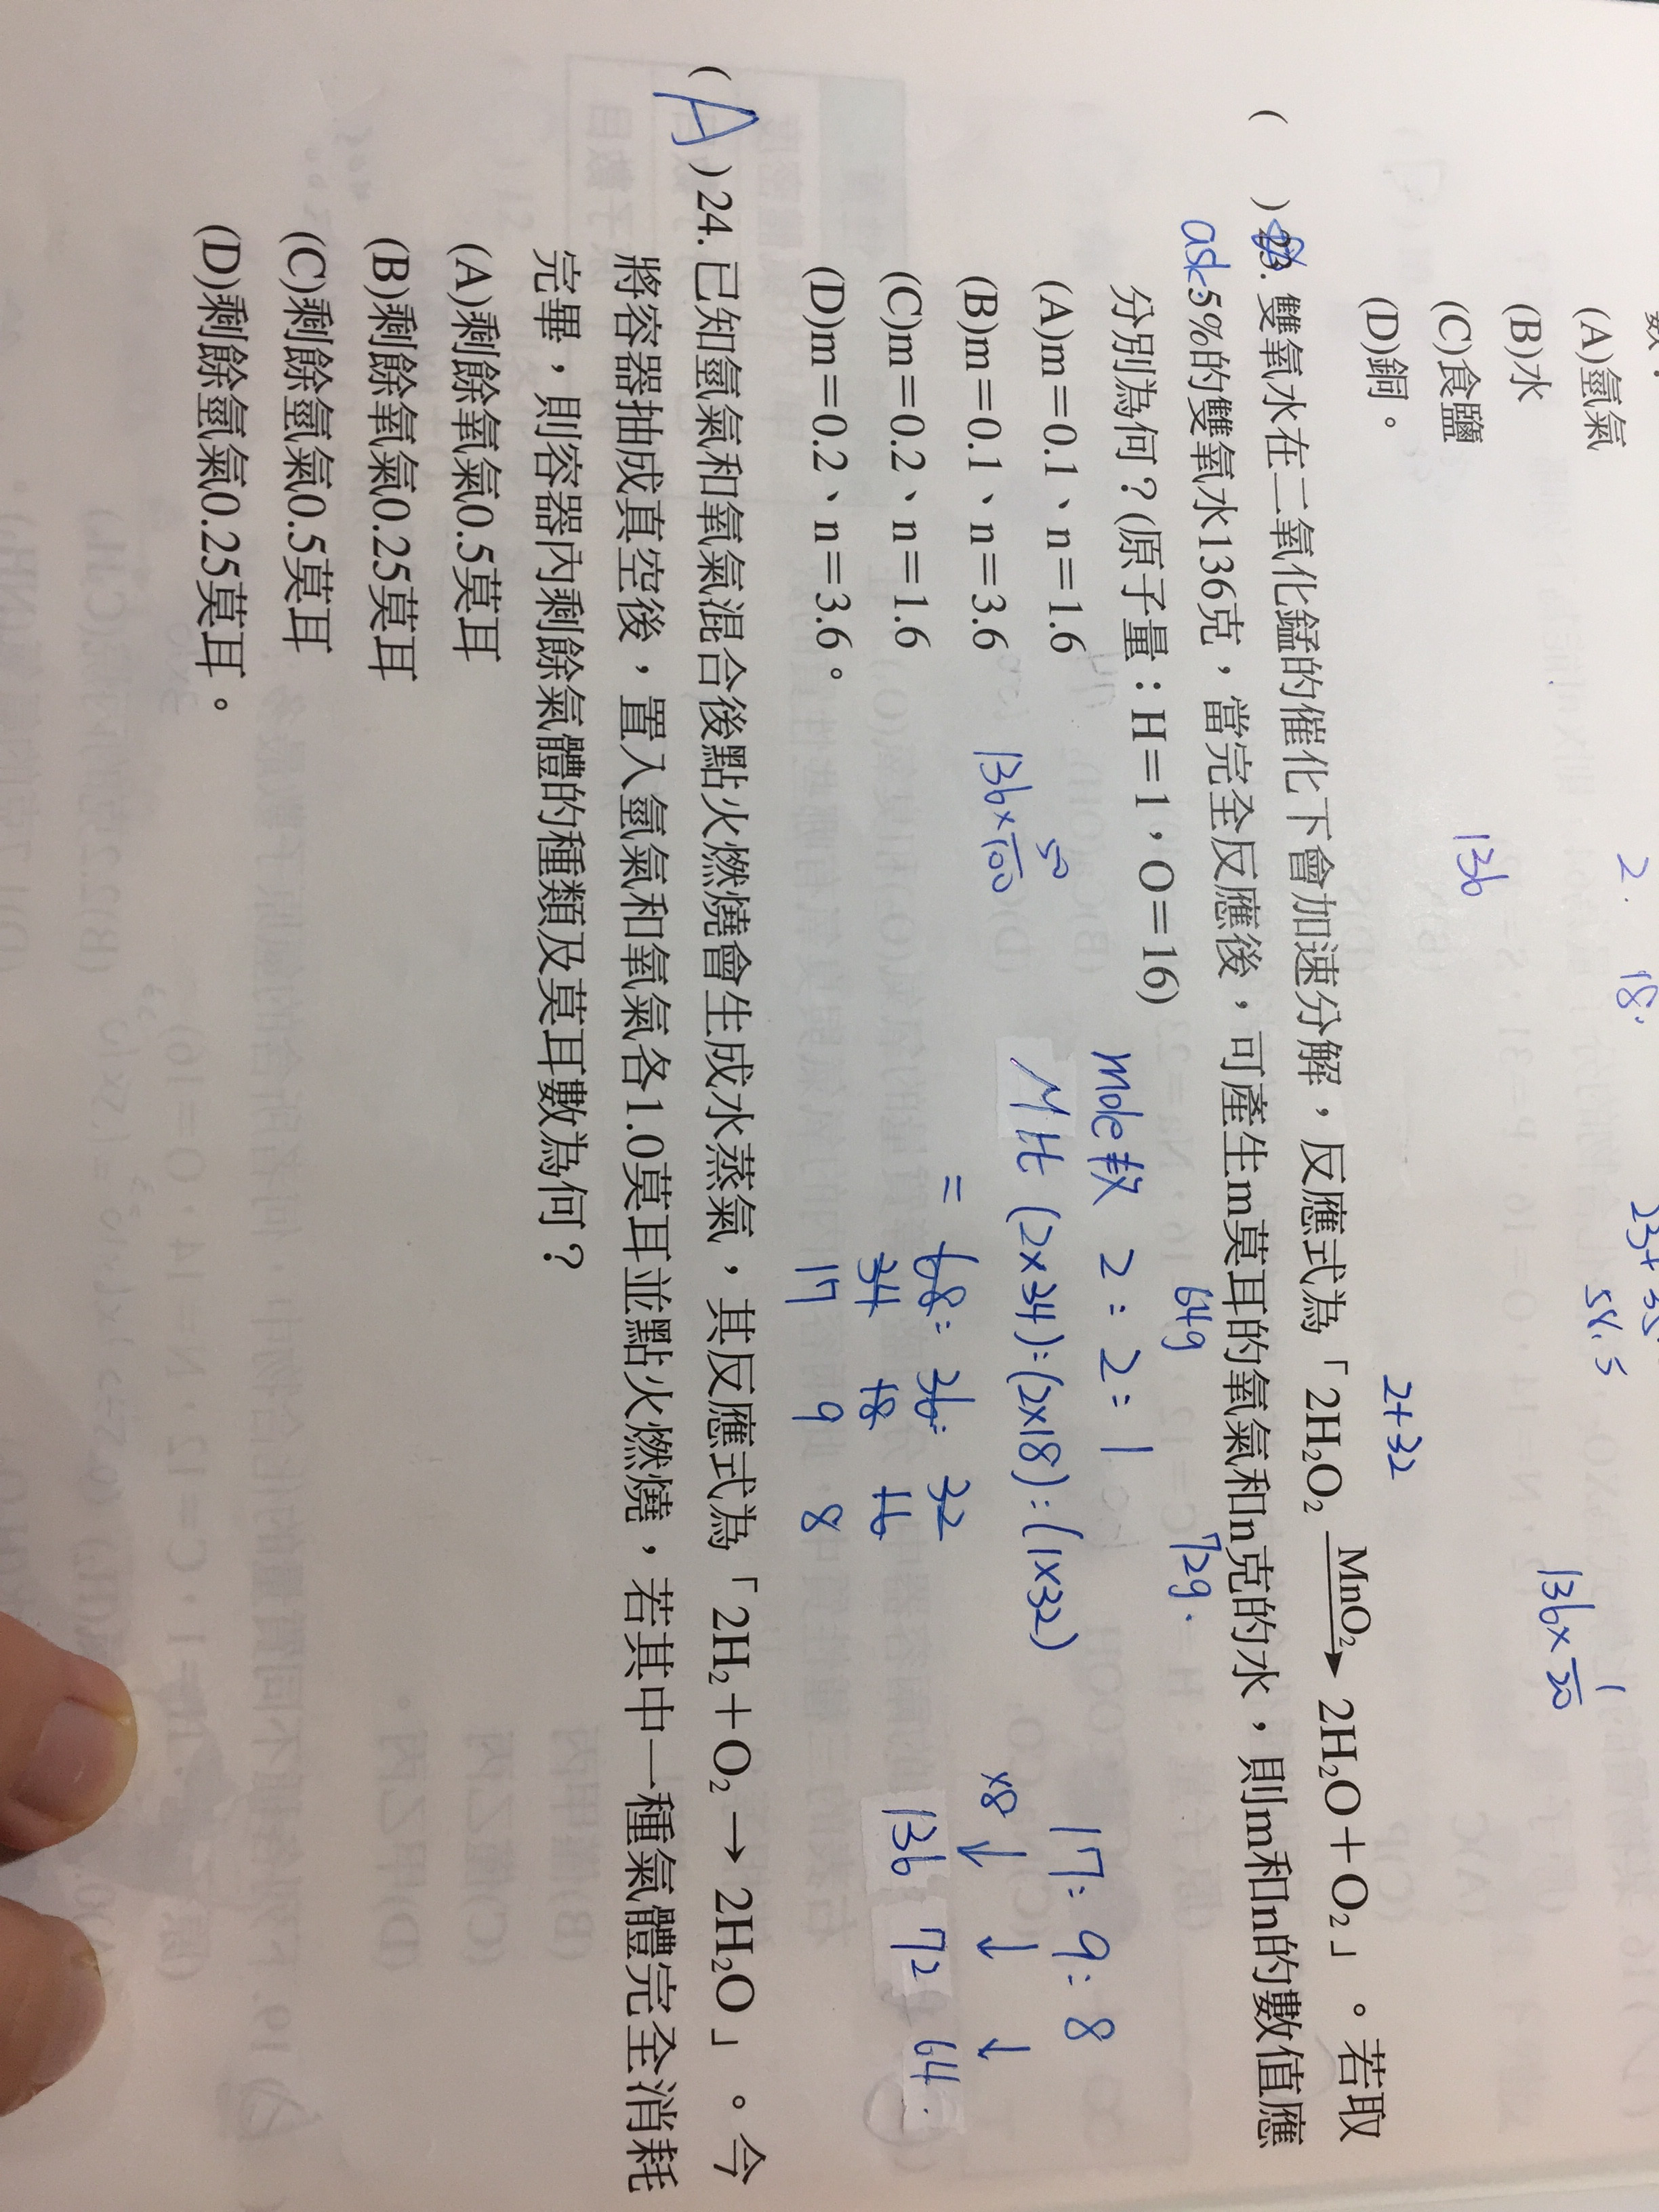 (A)氫氣
(B)水
(C)食鹽
(D)銅。
2. 18.
58.5
136
2+32
136×1/20
( )23.雙氧水在二氧化錳的催化下會加速分解，反應式為「2H₂O₂ MnO₂→ 2H₂O＋O₂」。若取
ask 5%的雙氧水136克，當完全反應後，可產生m莫耳的氧氣和n克的水，則m和n的數值應
分別為何？(原子量：H＝1，O＝16)
64g 72g.
(A)m＝0.1、n＝1.6
(B)m＝0.1、n＝3.6
(C)m＝0.2、n＝1.6
(D)m＝0.2、n＝3.6。
136×50/100
mole数 2:2:1
M比 (2×34):(2×18):(1×32)
= 68: 36: 32
34 18 16
17 9 8
17: 9: 8
×8 ↓ ↓ ↓
136 72 64.
(A)24.已知氫氣和氧氣混合後點火燃燒會生成水蒸氣，其反應式為「2H₂＋O₂→2H₂O」。今
將容器抽成真空後，置入氫氣和氧氣各1.0莫耳並點火燃燒，若其中一種氣體完全消耗
完畢，則容器內剩餘氣體的種類及莫耳數為何？
(A)剩餘氧氣0.5莫耳
(B)剩餘氧氣0.25莫耳
(C)剩餘氫氣0.5莫耳
(D)剩餘氫氣0.25莫耳。